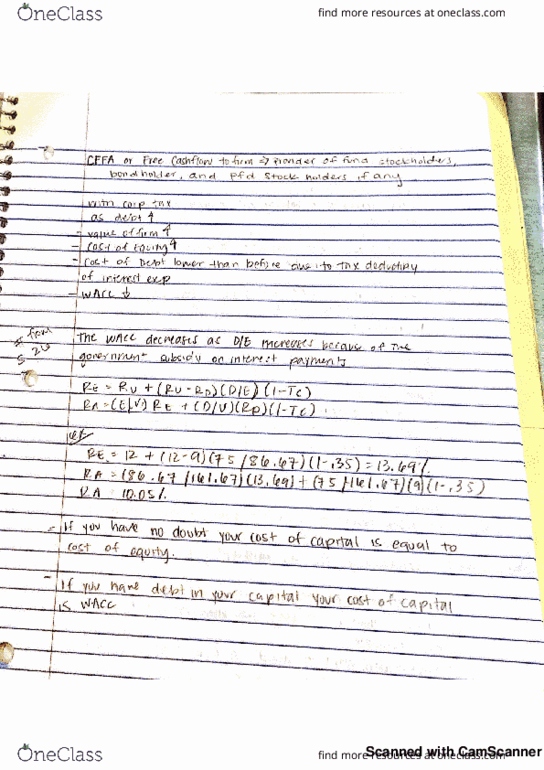 OneClass
find more resources at oneclass.com
CFFA or Free Cashflow to firm => provider of fund stockholders,
bondholder, and pfd stock holders if any
with corp tax
as debt ↑
- value of firm ↑
- cost of equity ↑
- cost of Debt lower than before due to tax
of interest exp
- WACC ↓
The WACC decreases as D/E increases because of the
government subsidy on interest payments
RE = RU + (RU - RD)(D/E)(1-TC)
RA = (E/V) RE + (D/V)(RD)(1-TC)
RE = 12 + (12-9)(75/86.67)(1-.35) = 13.69%
RA = (86.67/161.67)(13.69) + (75/161.67)(9)(1-.35)
RA = 10.05%
- If you have no doubt your cost of capital is equal to
cost of equity.
- If you have debt in your capital your cost of capital
is WACC
OneClass
find more resources at oneclass.com
Scanned with CamScanner